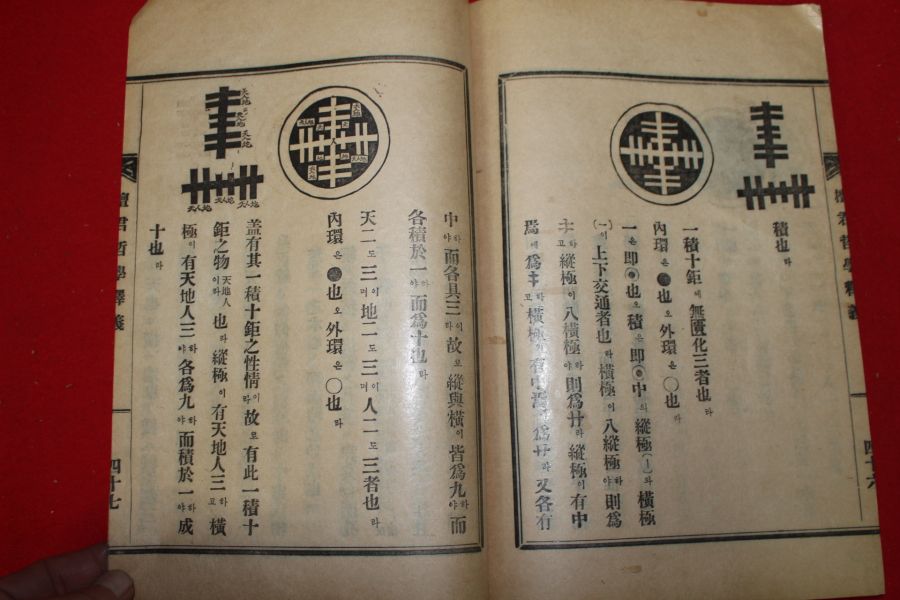 積也라
一積十鉅에無匱化三者也라
內環은●也오外環은○也라
一은即◉也오積은即◉中의縱極(ㅣ)와橫極
(一)이上下交通者也라橫極이入縱極하야則爲
キ하고縱極이入橫極하야則爲卄라縱極이有中
焉에爲キ하고橫極이有中焉에爲卄라又各有
檀君哲學釋義
四十六
中하야而各具三이라故로縱與橫이皆爲九하야而
各積於一하야而爲十也라
天二도三이며地二도三이며人二도三者也라
內環은●也오外環은○也라
蓋有其一積十鉅之性情이라故로有此一積十
鉅之物이라天地人也라縱極이有天地人三하고橫
極이有天地人三하야各爲九하야而積於一하야成
十也라
天人地
天人地
天人地
天人地
天人地
天人地
檀君哲學釋義
四十七